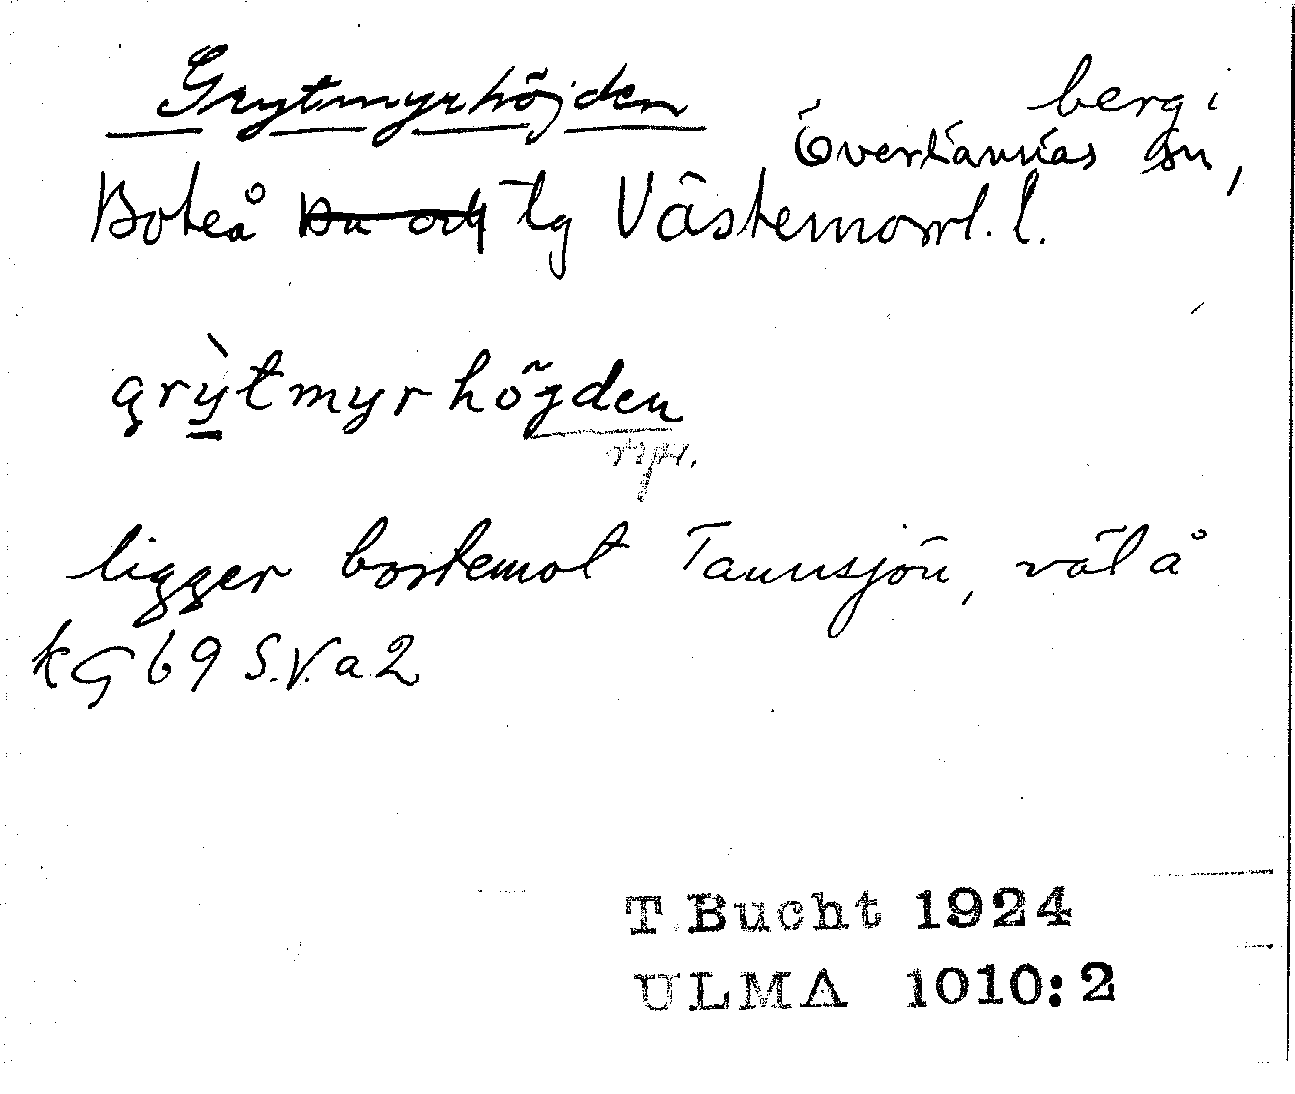 Grytmyrhöjden berg i
Överlännäs sn,
Boteå tg Västernorrl. l.
grỳtmyrhögden
ligger bortemot Tannsjön, väl å
kG 69 S.V. a 2
T Bucht 1924
ULMA 1010:2